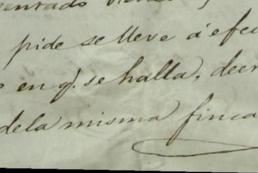 pide se lleve á efec
en q.e se halla, decr
de la misma finca